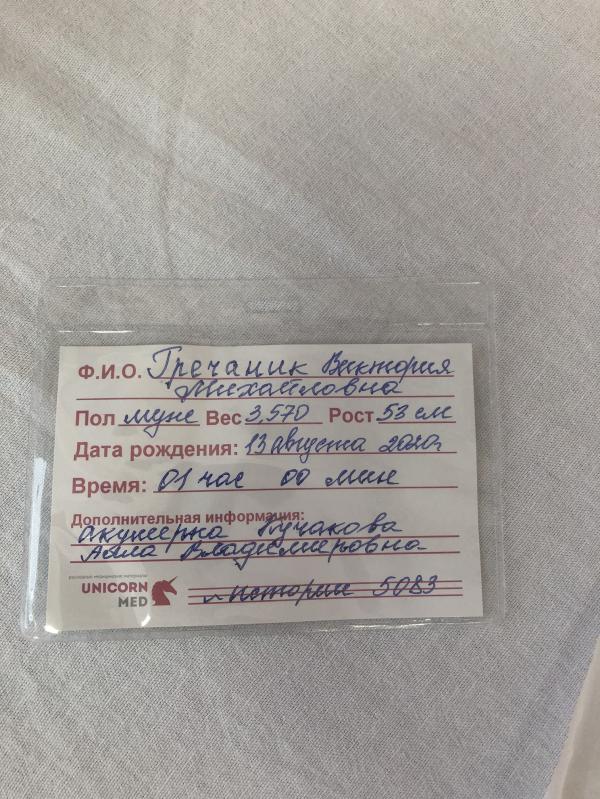 Ф.И.О. Гречаник Виктория
Михайловна
Пол муж Вес 3,570 Рост 53 см
Дата рождения: 13 августа 2020г
Время: 01 час 00 мин
Дополнительная информация:
акушерка Кучакова
Алла Владимировна
UNICORN
MED
№ истории 5083